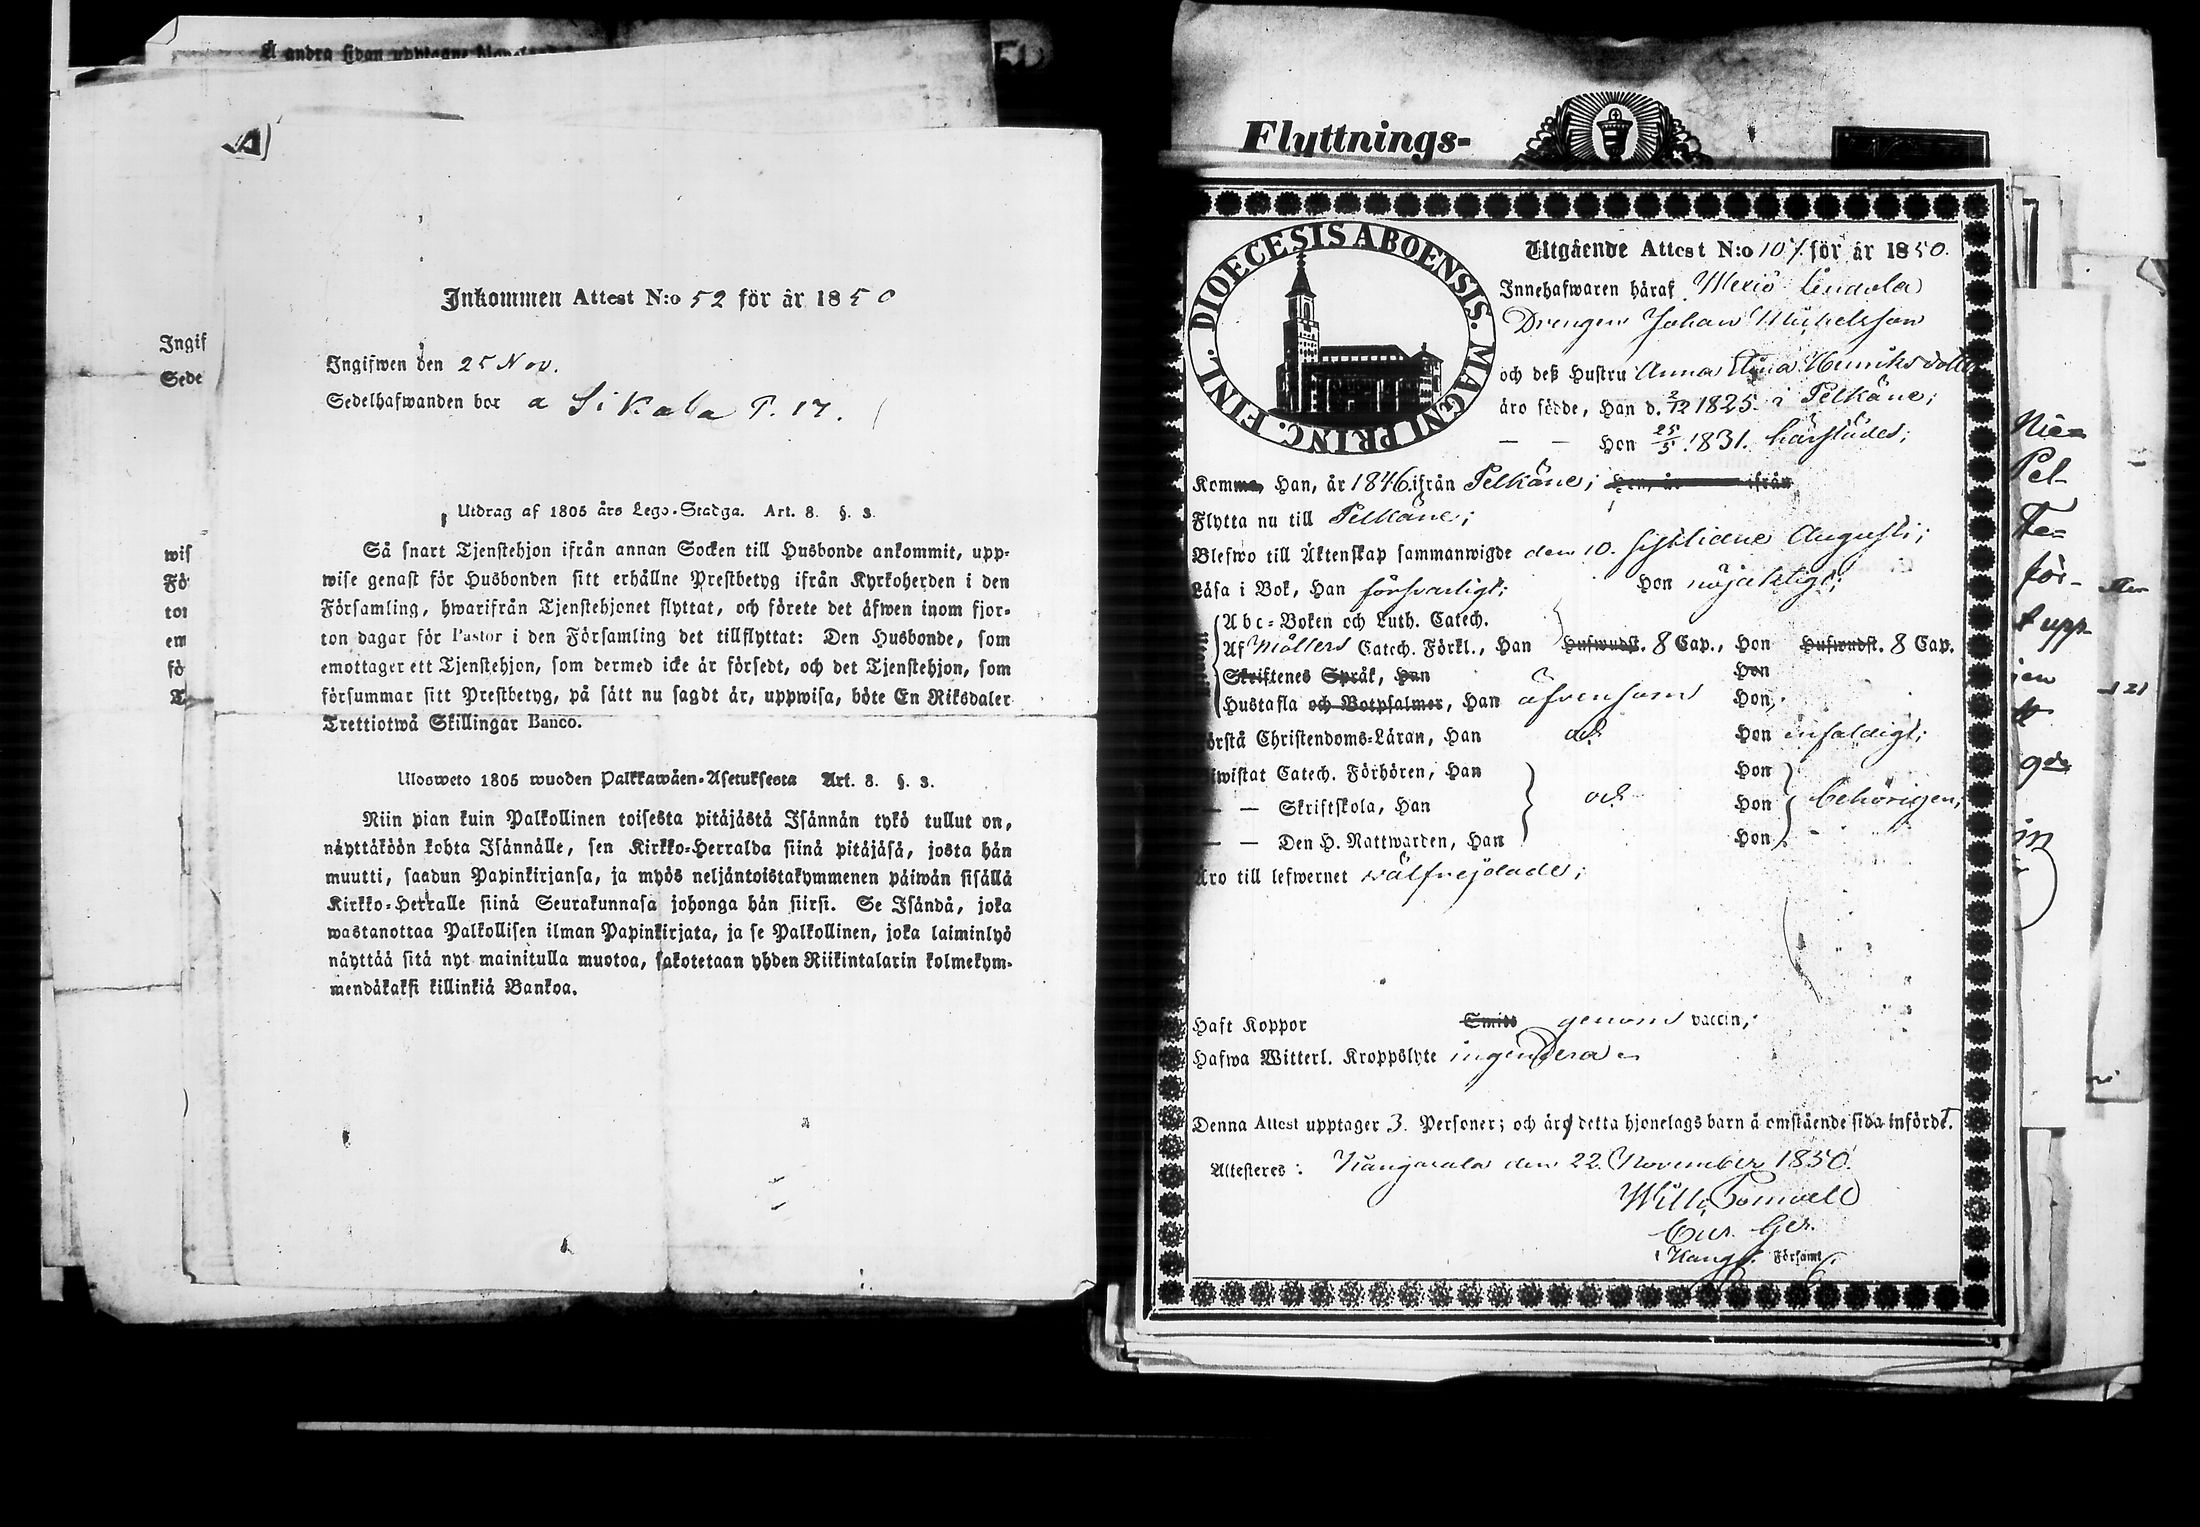 Å andra sidan upptagne
Inkommen Attest N:o 52 för år 1850
Ingif
Sede
Ingifwen den 25 Nov.
Sedelhafwanden bor a Sikala P. 17.
Utdrag af 1805 års Lego-Stadga. Art. 8. §. 3.
wis
Fö
tor
em
fö
T
Så snart Tjenstehjon ifrån annan Socken till Husbonde ankommit, upp-
wise genast för Husbonden sitt erhållne Prestbetyg ifrån Kyrkoherden i den
Församling, hwarifrån Tjenstehjonet flyttat, och förete det äfwen inom fjor-
ton dagar för Pastor i den Församling det tillflyttat: Den Husbonde, som
emottager ett Tjenstehjon, som dermed icke är försedt, och det Tjenstehjon, som
försummar sitt Prestbetyg, på sätt nu sagdt är, uppwisa, böte En Riksdaler
Trettiotwå Skillingar Banco.
Ulosweto 1805 wuoden Palkkawäen-Asetuksesta Art. 8. §. 3.
Niin pian kuin Palkollinen toisesta pitäjästä Isännän tykö tullut on,
näyttäköön kohta Isännälle, sen Kirkko-Herralda siinä pitäjäsä, josta hän
muutti, saadun Papinkirjansa, ja myös neljäntoistakymmenen päiwän sisällä
Kirkko-Herralle siinä Seurakunnasa johonga hän siirsi. Se Isändä, joka
wastanottaa Palkollisen ilman Papinkirjata, ja se Palkollinen, joka laiminlyö
näyttää sitä nyt mainitulla muotoa, sakotetaan yhden Riikintalarin kolmekym-
mendäkaksi killinkiä Bankoa.
Flyttnings-
DIOECESIS ABOENSIS. MAGNI PRINC. FINL.
Utgående Attest N:o 107. för år 1850.
Innehafwaren häraf
Drengen Johan Michelsson
och deß Hustru Anna Stina Henriksdotter
äro födde, Han d. 2/12 1825. i Pelkäne;
— — Hon 25/5 1831. härstädes;
Komme, Han, år 1846. ifrån Pelkäne; Hon, år ifrån
Flytta nu till Pelkäne;
Blefwo till Äktenskap sammanwigde den 10. sistlidne Augusti;
Läsa i Bok, Han försvarligt; Hon nöjaktigt;
Abc-Boken och Luth. Catech.
Af Möllers Catech. Förkl., Han Hufwudst. 8 Cap., Hon Hufwudst. 8 Cap.
Skriftenes Språk, Han Hon
Hustafla och Botpsalmer, Han äfvensom Hon;
örstå Christendoms-Läran, Han och Hon enfaldigt;
iwistat Catech. Förhören, Han Hon
— — Skriftskola, Han och Hon behörigen;
— — Den H. Nattwarden, Han Hon
Äro till lefwernet wälfrejdade;
Haft Koppor Smitt genom vaccin;
Hafwa Witterl. Kroppslyte ingendera
Denna Attest upptager 3. Personer; och äro detta hjonelags barn å omstående sida införde.
Attesteres: Kangasala den 22. November 1850.
Cur. Ger.
i Kang. Församl.
Pel-
för-
upp-
in